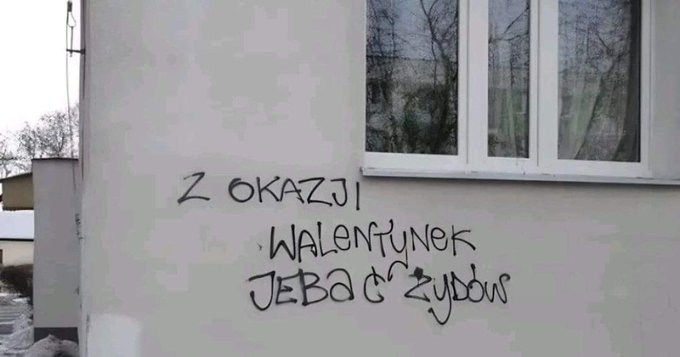 Z OKAZJI
WALENTYNEK
JEBAĆ ŻYDÓW